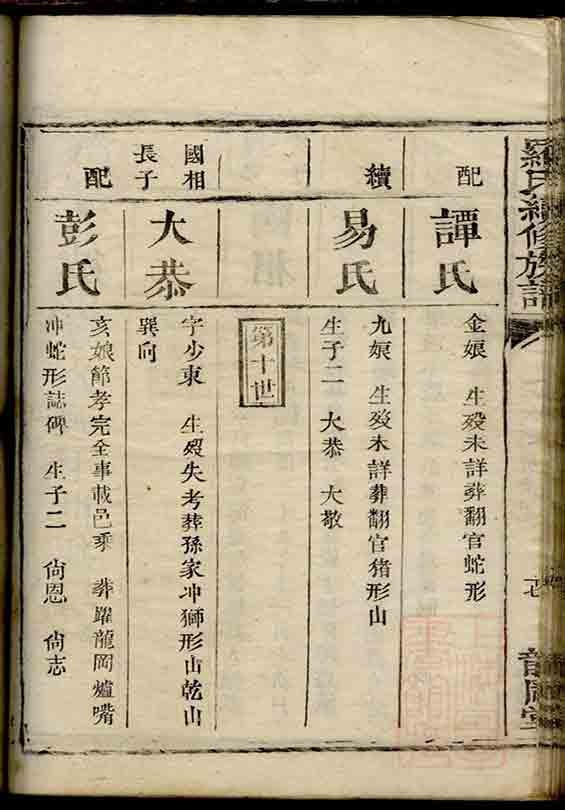 羅氏續修族譜
配
譚氏
金娘 生歿未詳葬翻官蛇形
續
易氏
九娘 生歿未詳葬翻官猪形山
生子二 大恭 大敬
第十世
國相
長子
大恭
字少東 生歿失考葬孫家冲獅形山乾山
巽向
配
彭氏
亥娘節孝完全事載邑乘 葬躍龍岡爐嘴
冲蛇形誌碑 生子二 尙恩 尙志